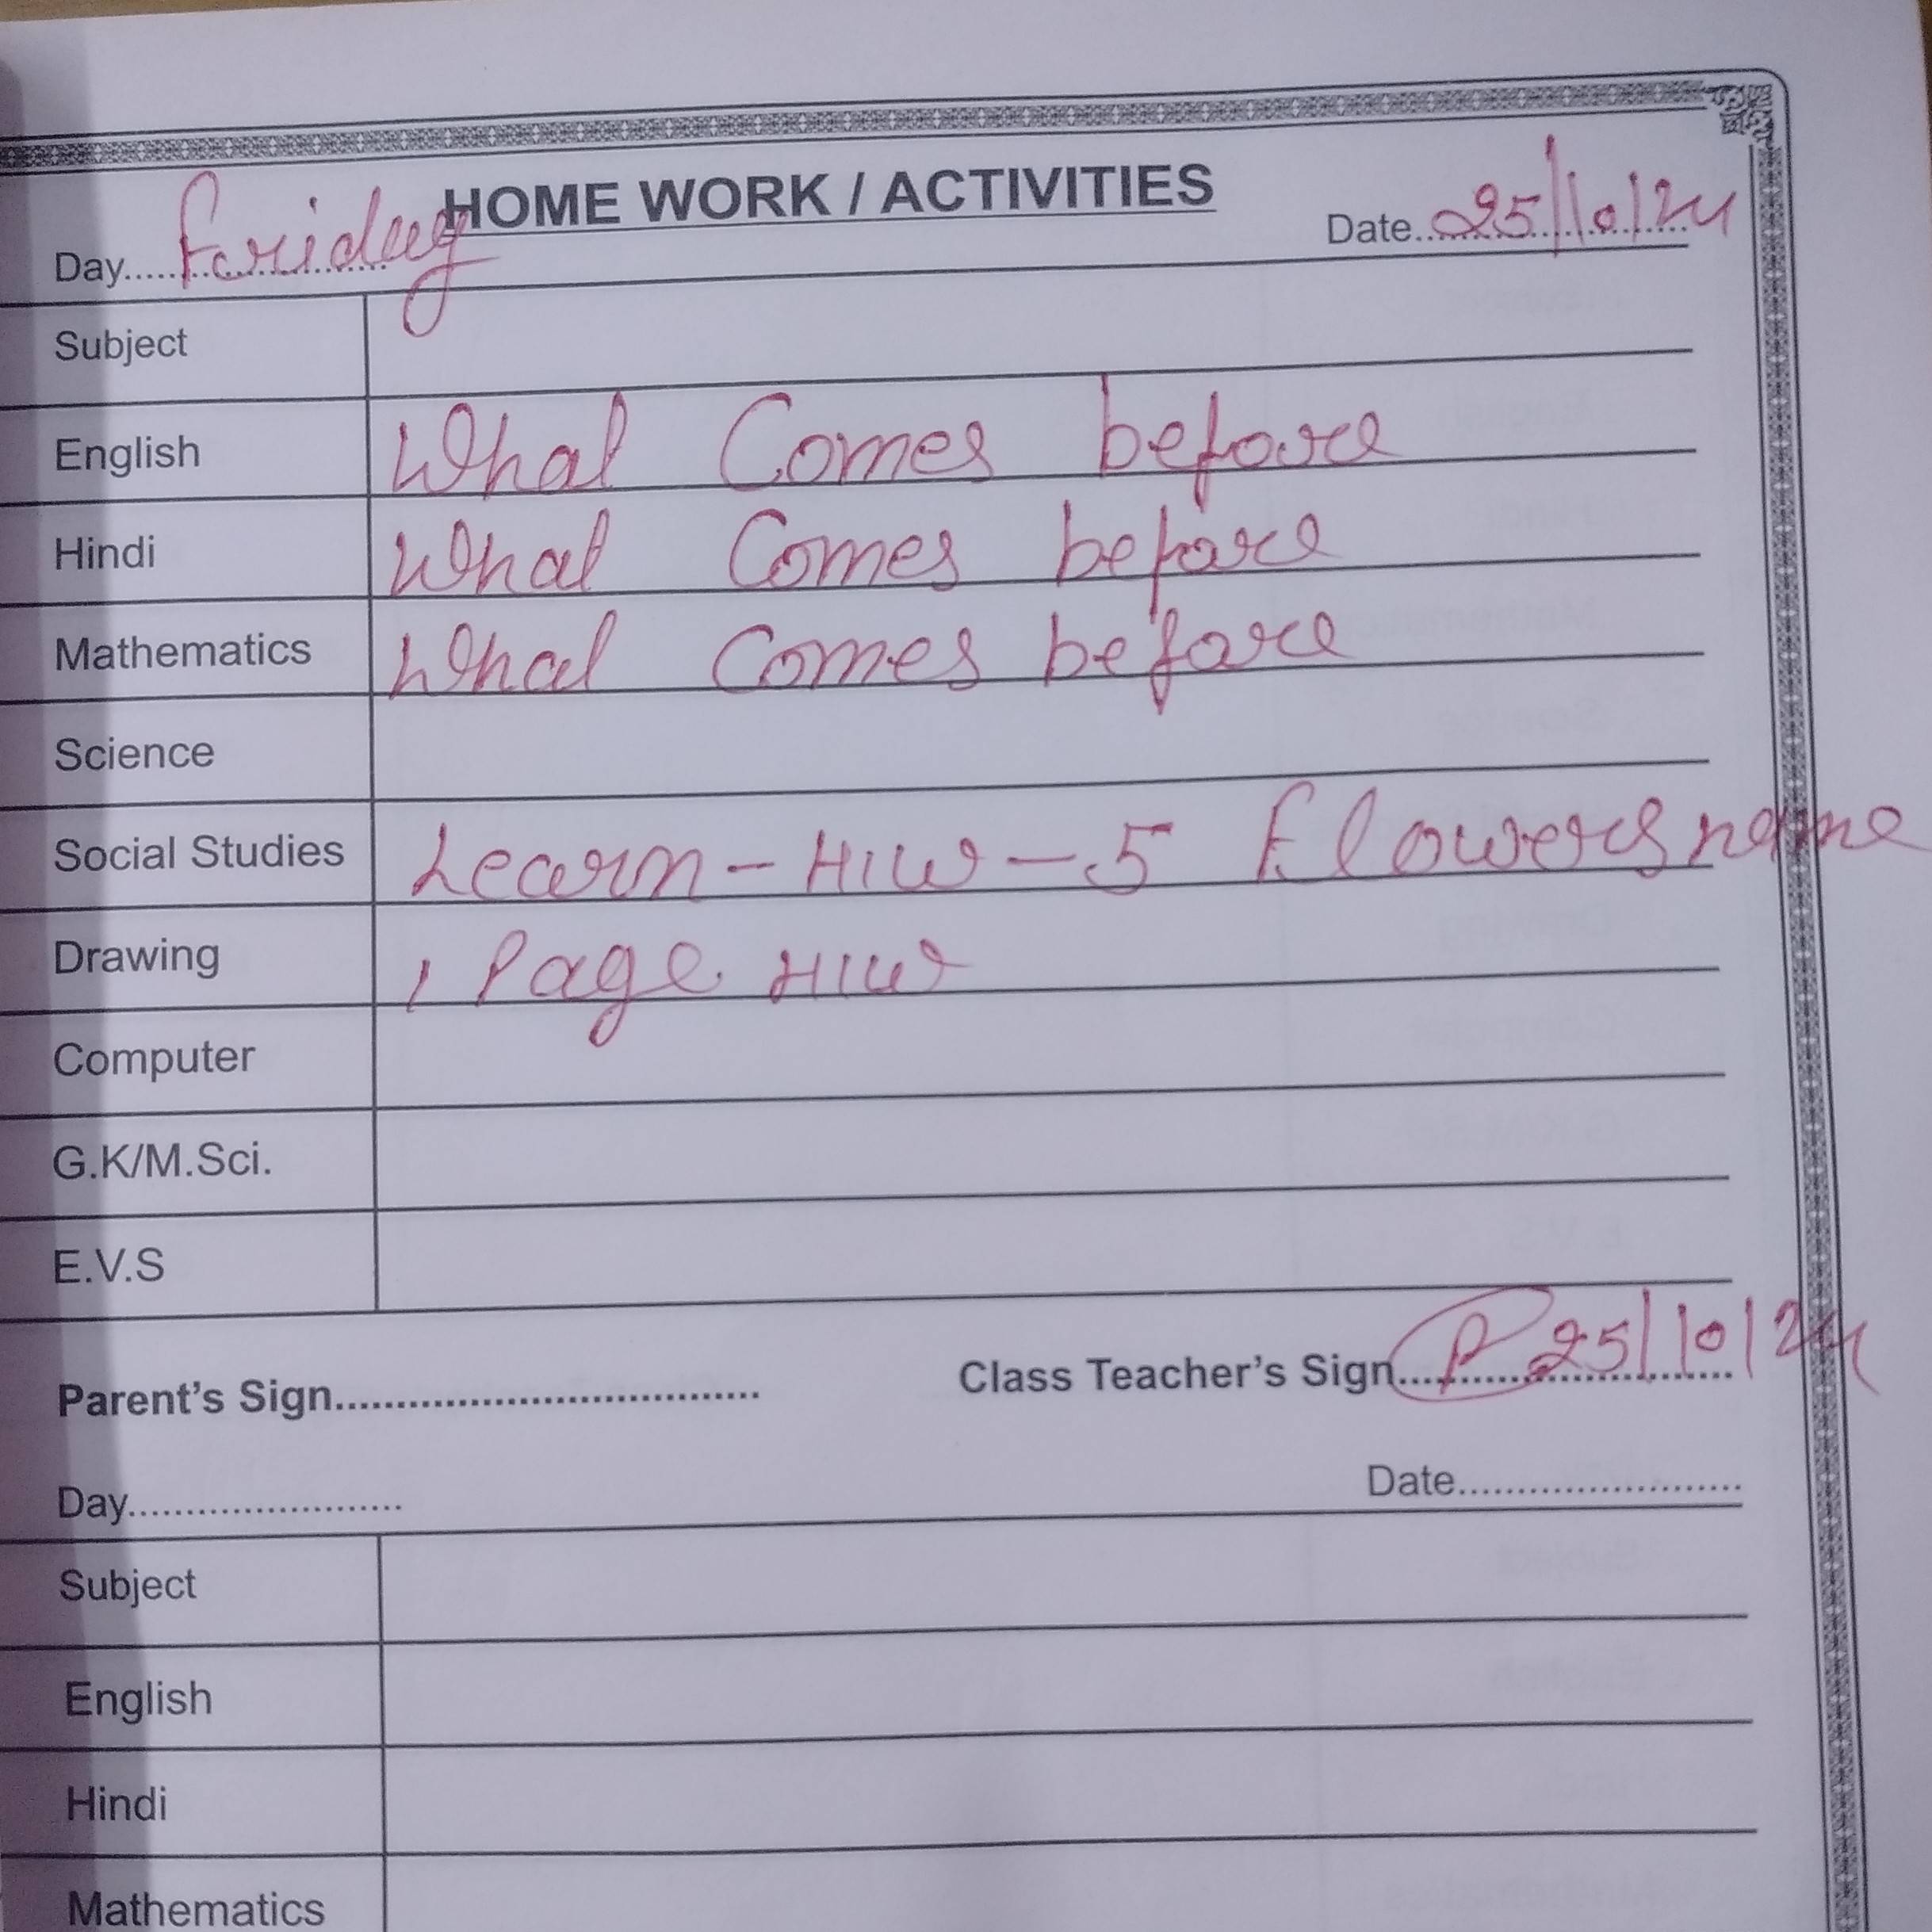 HOME WORK / ACTIVITIES
Day.....Friday Date..25/10/24
Subject
English What Comes before
Hindi What Comes before
Mathematics What Comes before
Science
Social Studies Learn - H/W - 5 Flowers name
Drawing 1 Page H/W
Computer
G.K/M.Sci.
E.V.S
Parent's Sign.................................. Class Teacher's Sign....P 25/10/24
Day........................ Date.........................
Subject
English
Hindi
Mathematics